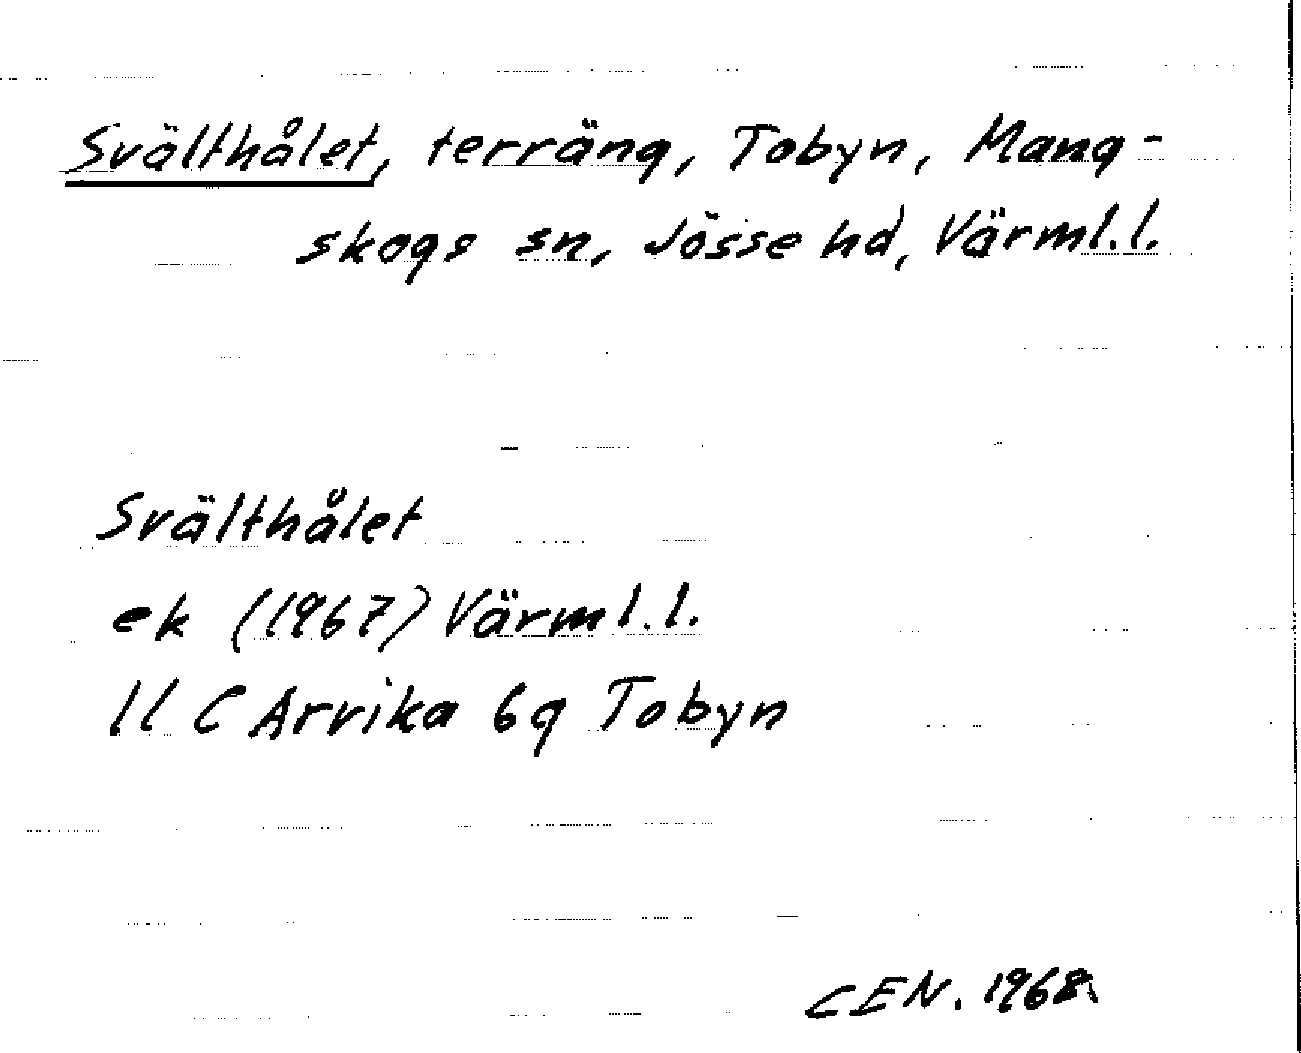 Svälthålet, terräng, Tobyn, Mang-
skogs sn, Jösse hd, Värml.l.
Svälthålet
ek (1967) Värml.l.
11 C Arvika 6g Tobyn
CEN. 1968